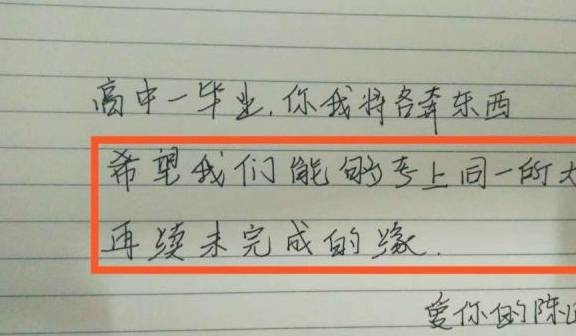 高中一毕业,你我将各奔东西
希望我们能够考上同一的大
再续未完成的缘.
爱你的陈